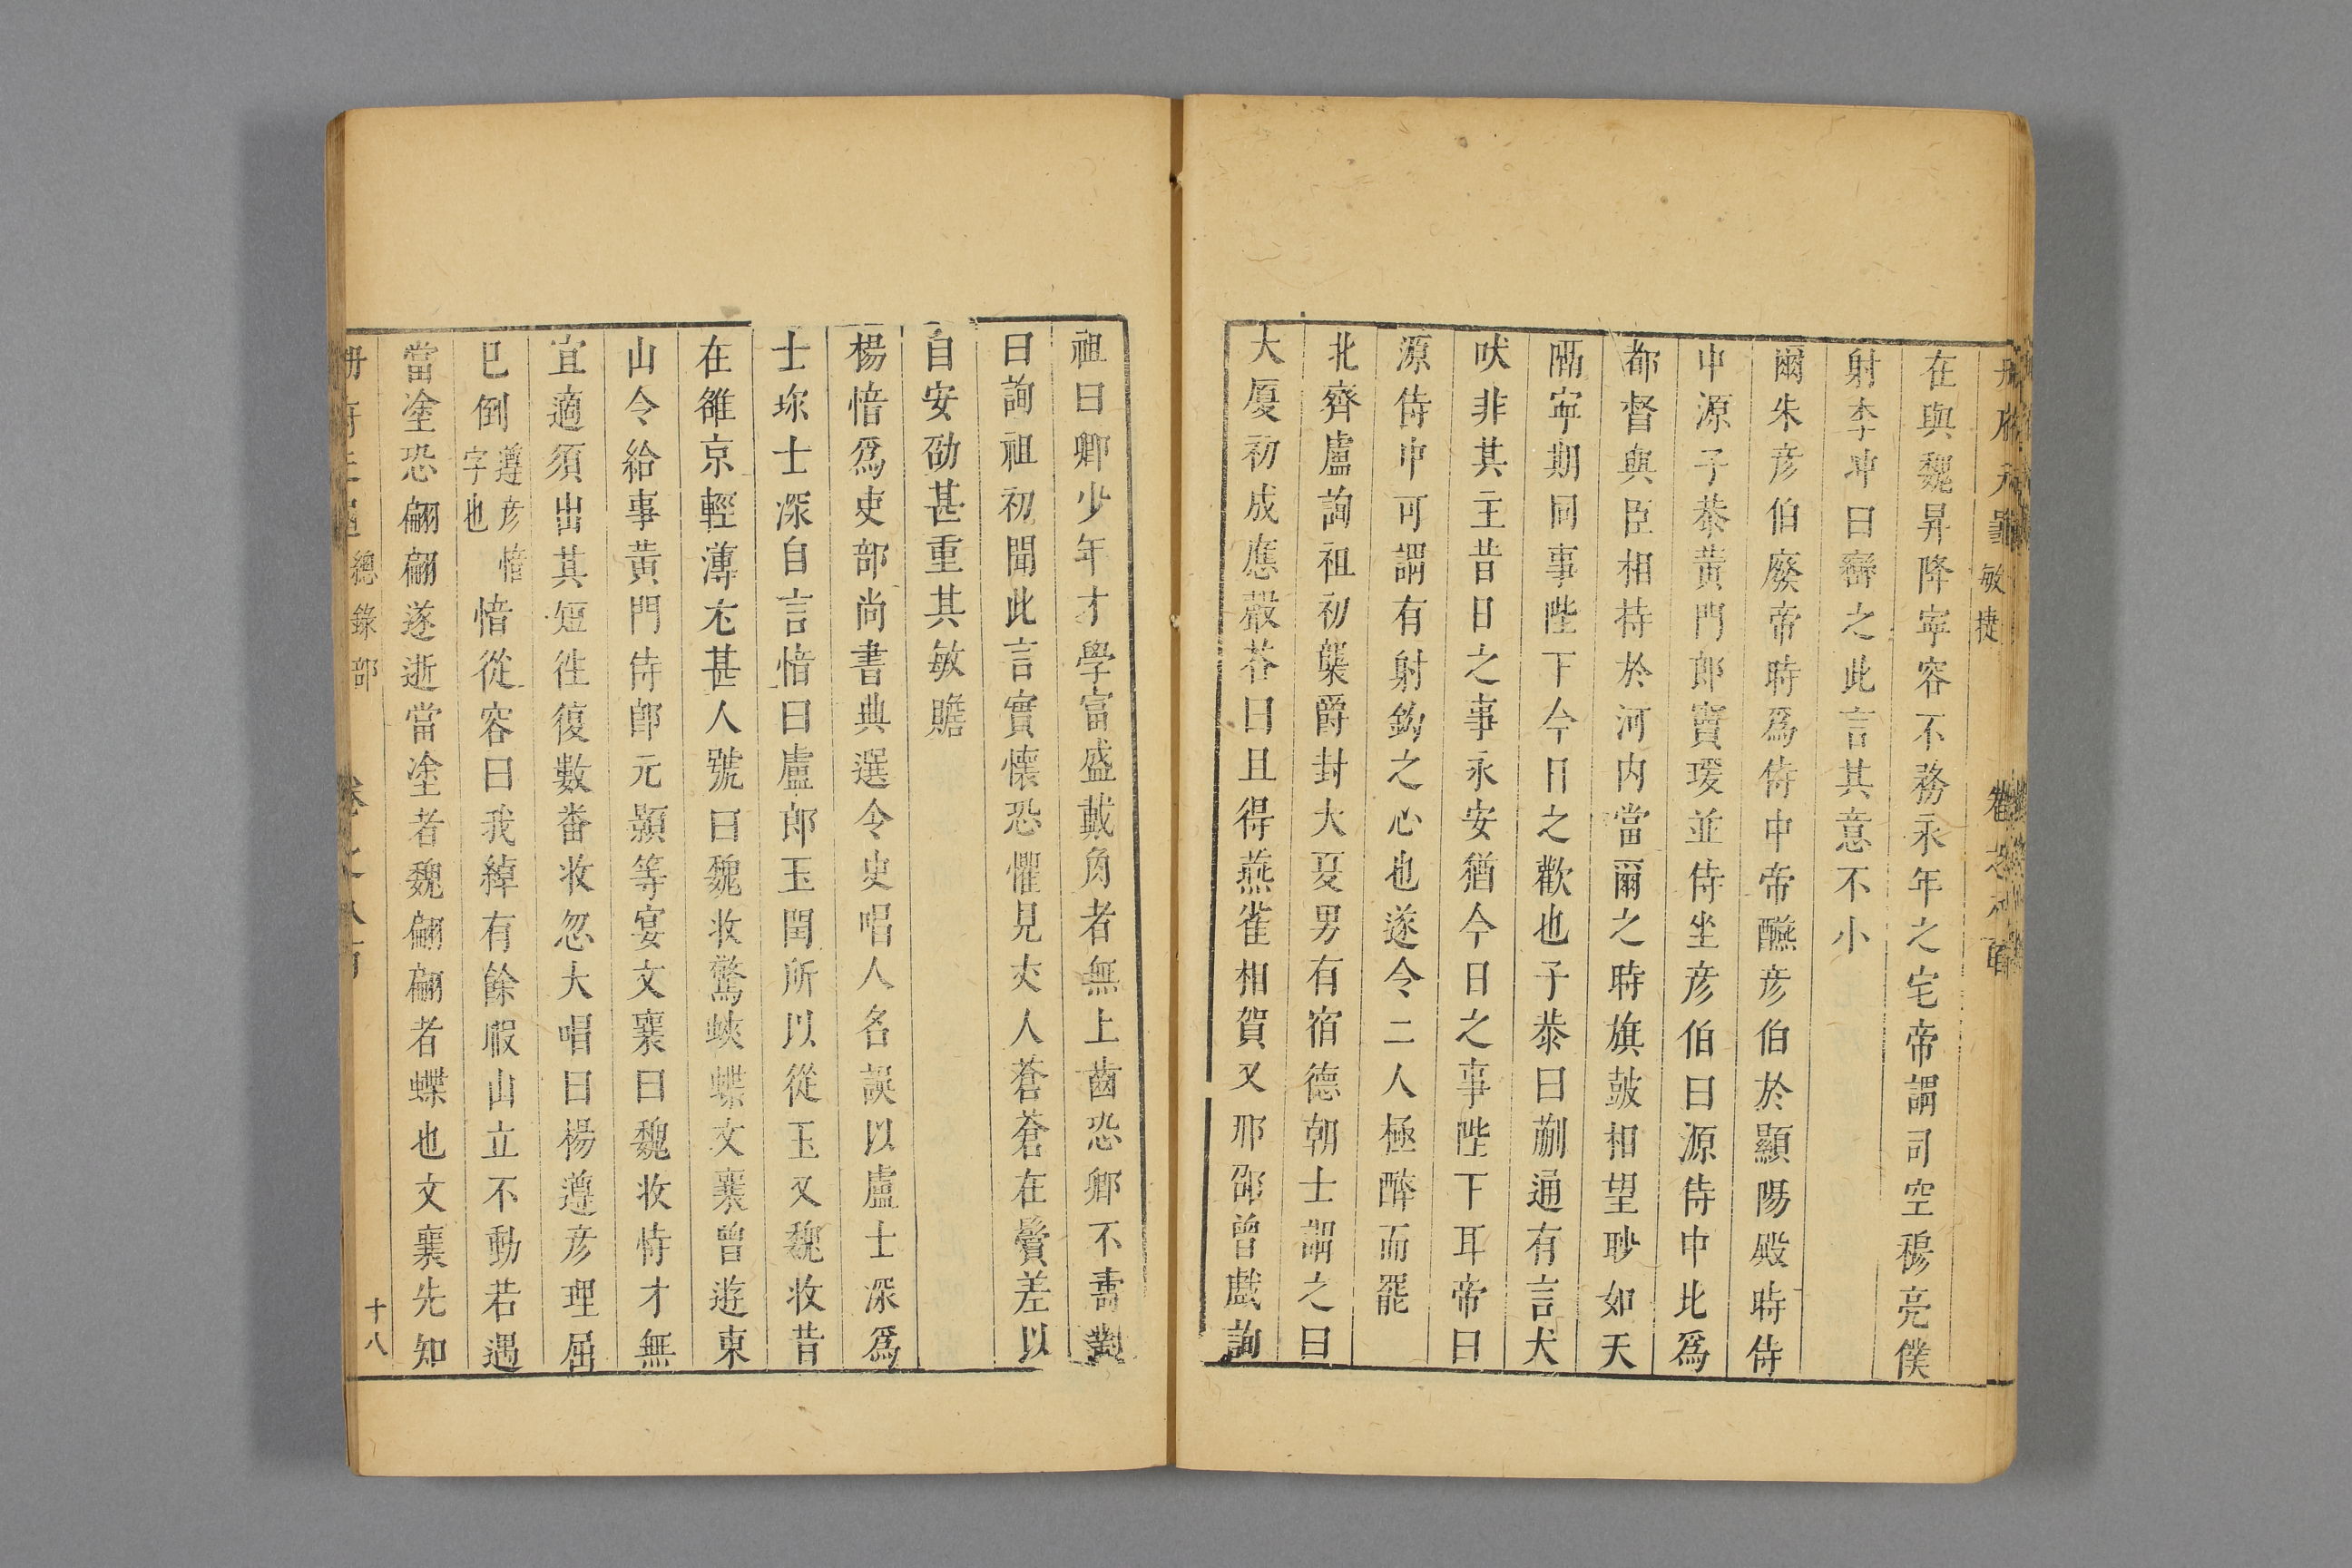 敏捷
在與魏昇降寧容不務永年之宅帝謂司空穆亮僕
射李冲曰嵩之此言其意不小
爾朱彥伯廢帝時爲侍中帝醼彥伯於顯陽殿時侍
中源子恭黃門郎竇瑗並侍坐彥伯曰源侍中比爲
都督與臣相持於河内當爾之時旗鼓相望眇如天
隔寧期同事陛下今日之歡也子恭曰蒯通有言犬
吠非其主昔日之事永安猶今日之事陛下耳帝曰
源侍中可謂有射鈎之心也遂令二人極醉而罷
北齊盧詢祖初襲爵封大夏男有宿德朝士謂之曰
大厦初成應聲荅曰且得燕雀相賀又邢邵曾戲詢
祖曰卿少年才學富盛戴角者無上齒恐卿不壽對
曰詢祖初聞此言實懷恐懼見丈人蒼蒼在鬢差以
自安劭甚重其敏贍
楊愔爲吏部尚書典選令史唱人名誤以盧士深爲
士琛士深自言愔曰盧郎玉閏所以從玉又魏收昔
在雒京輕薄尤甚人號曰魏收驚蛺蝶文襄曾遊東
山令給事黃門侍郎元顥等宴文襄曰魏收恃才無
宜適須出其短徃復數畨收忽大唱曰楊遵彥理屈
已倒遵彥愔字也愔從容曰我綽有餘暇山立不動若遇
當塗恐翩翩遂逝當塗者魏翩翩者蝶也文襄先知
總錄部
十八